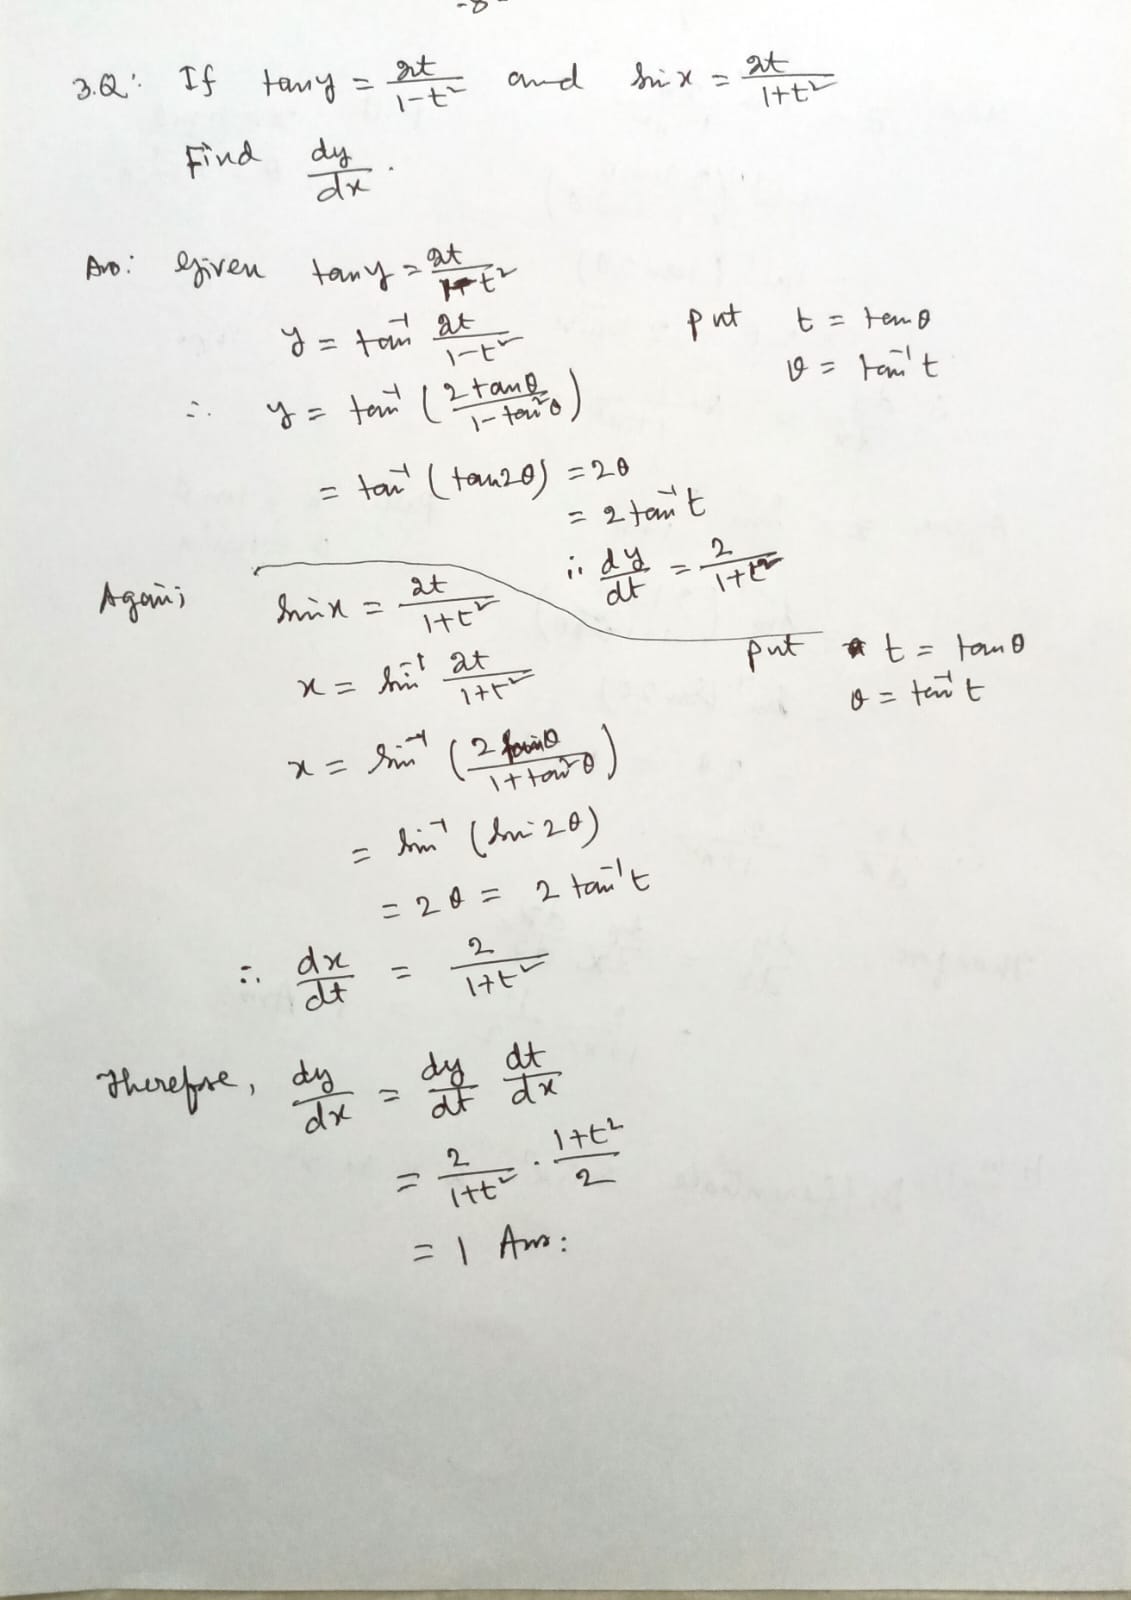 -8-
3.Q: If tan y = 2t/(1-t²) and sin x = 2t/(1+t²)
Find dy/dx.
Ans: Given tan y = 2t/(1-t²)
y = tan⁻¹ 2t/(1-t²) put t = tan θ
θ = tan⁻¹ t
∴ y = tan⁻¹ (2 tan θ/(1 - tan² θ))
= tan⁻¹ (tan 2θ) = 2θ
= 2 tan⁻¹ t
∴ dy/dt = 2/(1+t²)
Again; sin x = 2t/(1+t²)
put t = tan θ
x = sin⁻¹ 2t/(1+t²) θ = tan⁻¹ t
x = sin⁻¹ (2 tan θ/(1 + tan² θ))
= sin⁻¹ (sin 2θ)
= 2θ = 2 tan⁻¹ t
∴ dx/dt = 2/(1+t²)
Therefore, dy/dx = dy/dt dt/dx
= 2/(1+t²) · (1+t²)/2
= 1 Ans: